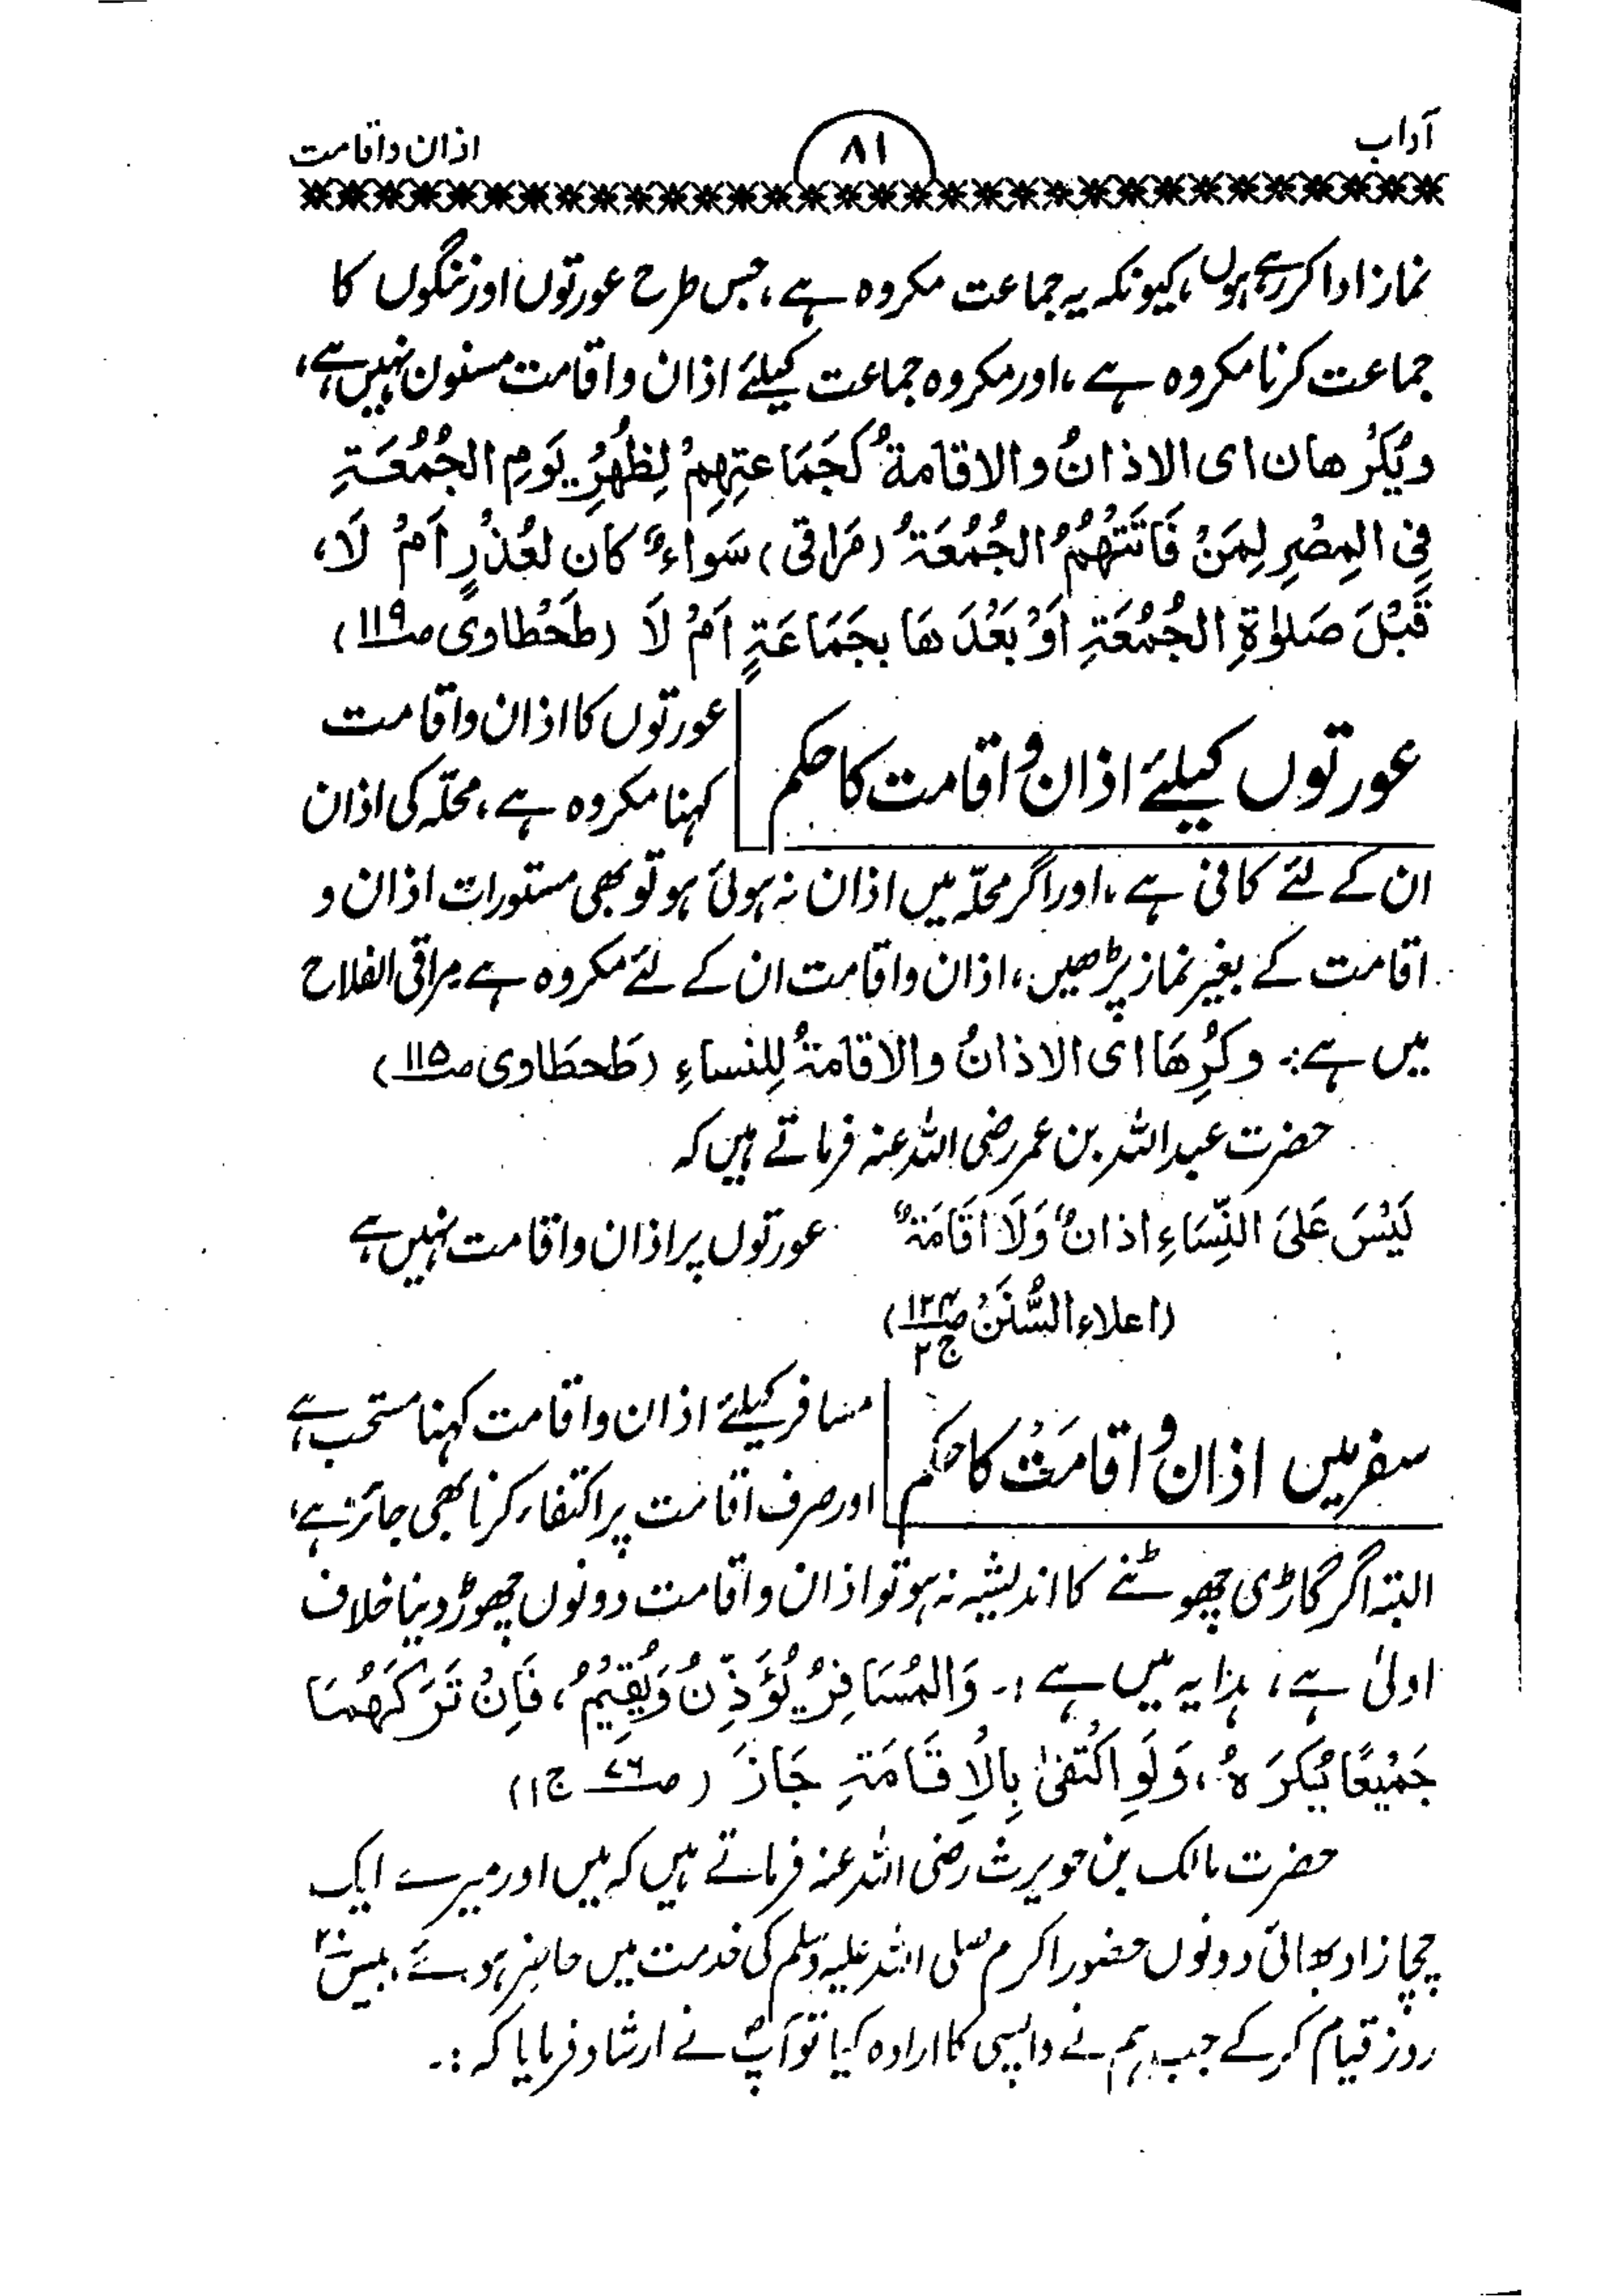 آداب
۸۱
اذان واقامت
نماز ادا کر رہے ہوں، کیونکہ یہ جماعت مکروہ ہے، جس طرح عورتوں اور ننگوں کا
جماعت کرنا مکروہ ہے، اور مکروہ جماعت کیلئے اذان واقامت مسنون نہیں ہے،
ویُکْرھان ای الاذانُ والاقامۃُ کَجَمَاعتِھِمْ لِظُھْرِ یَومِ الجُمُعَۃِ
فِی المِصْرِ لِمَنْ فَاتَتْھُمُ الجُمُعَۃُ (مَراقی) سَواءٌ کان لعُذْرٍ اَمْ لَا،
قَبْلَ صَلوٰۃِ الجُمُعَۃِ اَوْ بَعْدَھَا بجَمَاعَۃٍ اَمْ لَا (طَحْطاوی ص۱۱۹)
عورتوں کیلئے اذان و اقامت کا حکم
عورتوں کا اذان واقامت
کہنا مکروہ ہے، محلّہ کی اذان
ان کے لئے کافی ہے، اور اگر محلّہ میں اذان نہ ہوئی ہو تو بھی مستورات اذان و
اقامت کے بغیر نماز پڑھیں، اذان واقامت ان کے لئے مکروہ ہے مراقی الفلاح
میں ہے:۔ وکُرِھَا ای الاذانُ والاقامۃُ لِلنساءِ (طَحطَاوی ص۱۱۵)
حضرت عبداللہ بن عمر رضی اللہ عنہ فرماتے ہیں کہ
لَیْسَ عَلیَ النِّسَاءِ اذانٌ وَلَا اقَامَۃٌ
عورتوں پر اذان واقامت نہیں ہے
(اعلاء السُّنَنْ ص۱۲۴ ج۲)
سفر میں اذان و اقامَتْ کا حکم
مسافر کیلئے اذان واقامت کہنا مستحب ہے
اور صرف اقامت پر اکتفاء کرنا بھی جائز ہے،
البتہ اگر گاڑی چھوٹنے کا اندیشہ نہ ہو تو اذان واقامت دونوں چھوڑ دینا خلاف
اولیٰ ہے، ہدایہ میں ہے:۔ وَالمُسَافِرُ یُؤَذِّنُ وَیُقِیْمُ، فَاِنْ تَرَکَھُمَا
جَمْیعًا یُکرَہُ، وَلَوِ اکْتَفیٰ بِالْاِقَامَۃِ جَازَ (ص۷۶ ج۱)
حضرت مالک بن حویرث رضی اللہ عنہ فرماتے ہیں کہ میں اور میرے ایک
چچازاد بھائی دونوں حضور اکرم صلی اللہ علیہ وسلم کی خدمت میں حاضر ہوئے، بیس۲۰
روز قیام کر کے جب ہم نے واپسی کا ارادہ کیا تو آپؐ نے ارشاد فرمایا کہ:۔